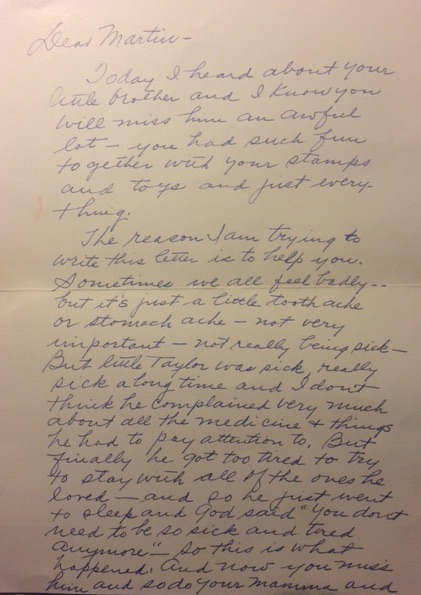 Dear Martin -
Today I heard about your
little brother and I know you
will miss him an awful
lot - you had such fun
together with your stamps
and toys and just every-
thing.
The reason I am trying to
write this letter is to help you.
Sometimes we all feel badly --
but it's just a little tooth ache
or stomach ache - not very
important - not really being sick -
But little Taylor was sick, really
sick a long time and I don't
think he complained very much
about all the medicine + things
he had to pay attention to. But
finally he got too tired to try
to stay with all of the ones he
loved - and so he just went
to sleep and God said "You don't
need to be so sick and tired
anymore" - so this is what
happened. And now you miss
him and so do your mamma and